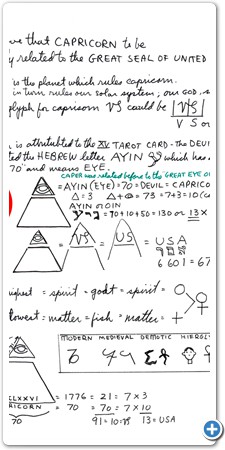 ve that CAPRICORN to be
y related to the GREAT SEAL OF UNITED
is the planet which rules capricorn.
in turn rules our solar system; our GOD, s
glyph for capricorn VS could be |VS|
V S or
is attributed to the XV TAROT CARD - The DEVI
ted the HEBREW letter AYIN which has
70" and means EYE.
CAPER was related before to the GREAT EYE O
= AYIN (EYE) = 70 = DEVIL = CAPRICO
Δ = 3 Δ + = 73 = 7+3 = 10 (
AYIN
= 70 + 10 + 50 = 130 or 13 x
= VS = US = USA
6 60 1 = 67
highest = spirit = goat = spirit =
lowest = matter = fish = matter =
MODERN MEDIEVAL DEMOTIC HIEROG
CLXXVI = 1776 = 21 = 7 x 3
RICORN = 70 = 70 = 7 x 10
70 91 = 10 = VS 13 = USA